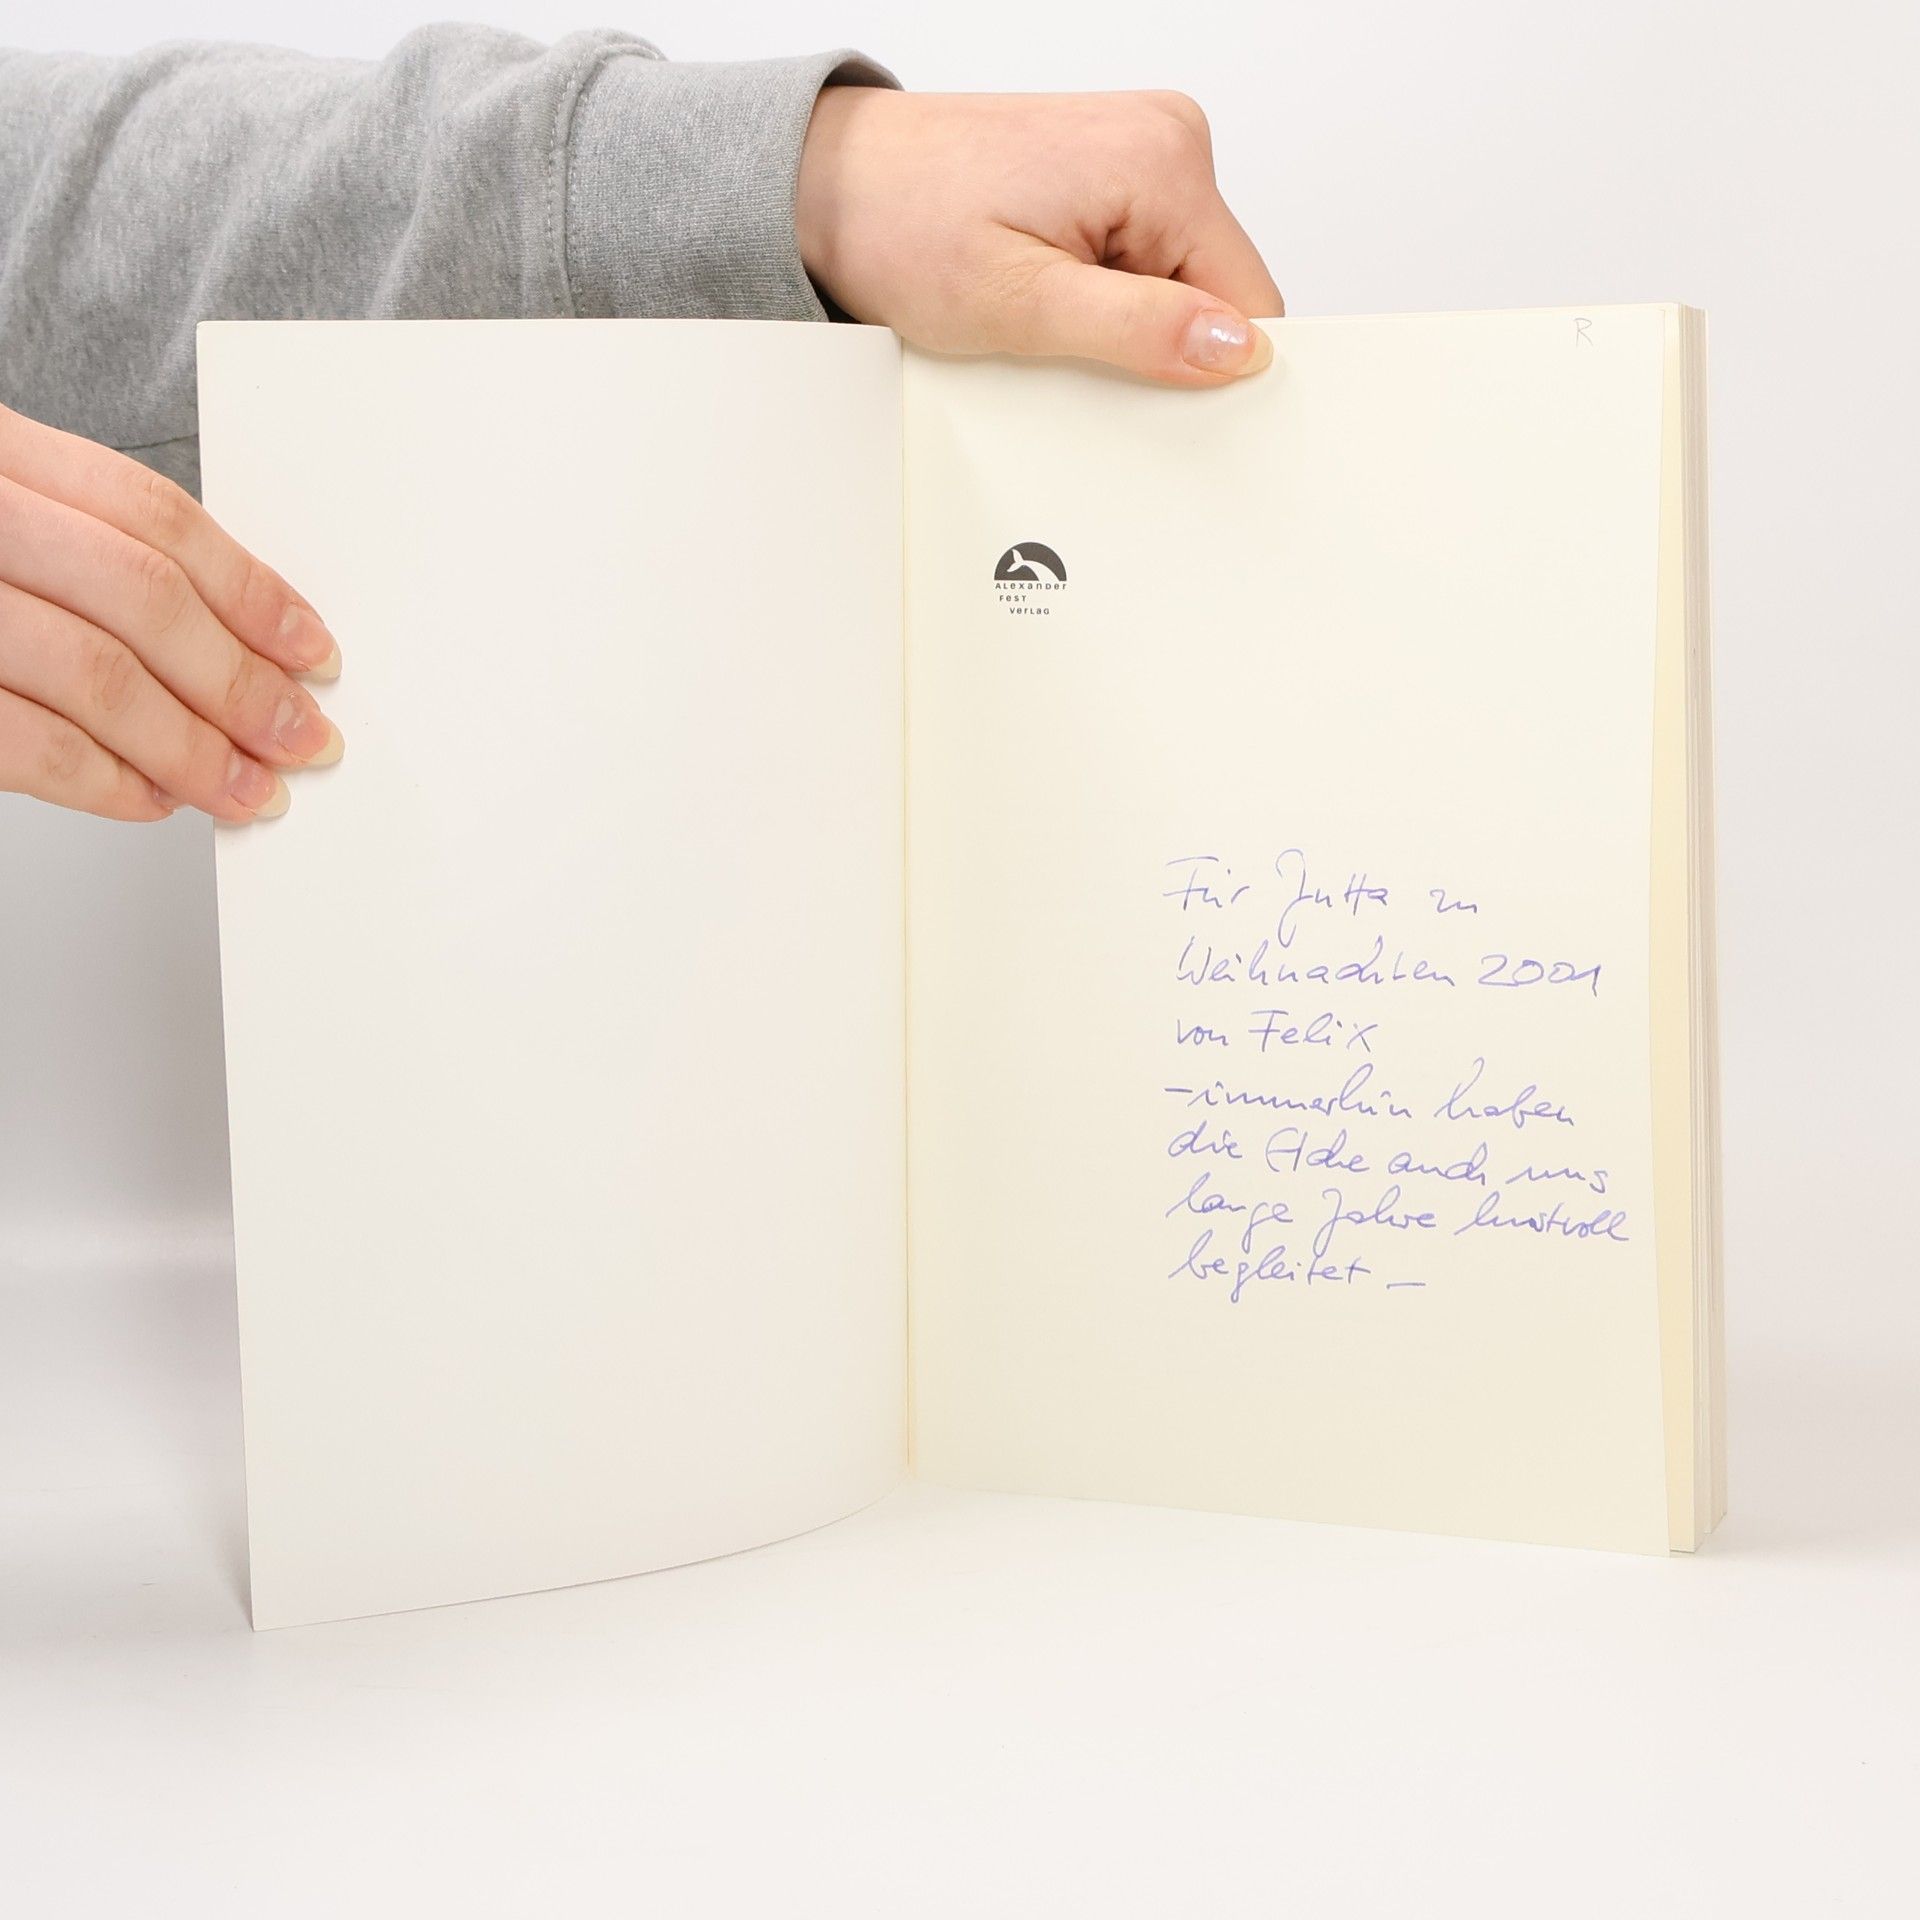 R
ALEXANDER
FEST
VERLAG
Für Jutta zu
Weihnachten 2001
von Felix
– immerhin haben
die auch uns
lange Jahre lustvoll
begleitet –